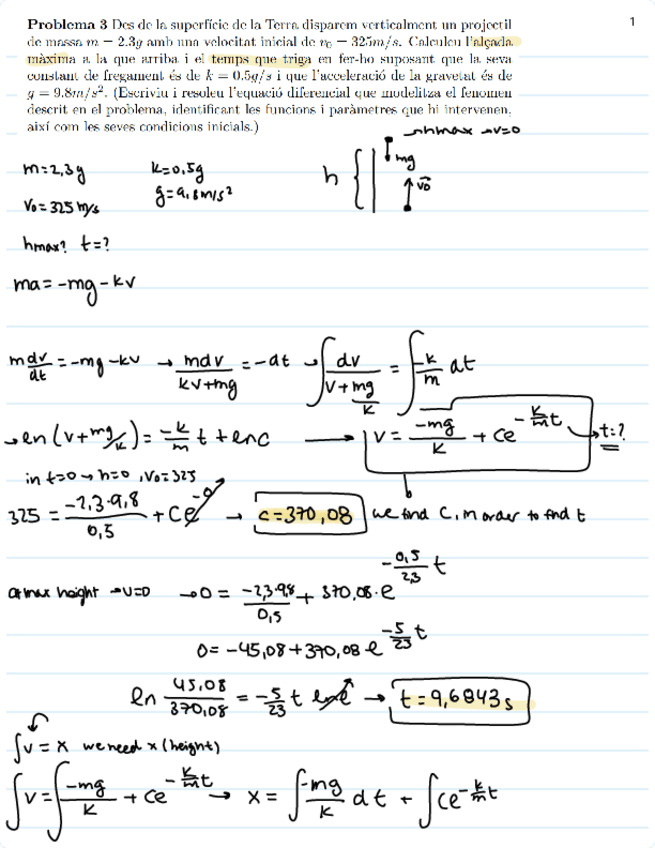 Problema 3 Des de la superfície de la Terra disparem verticalment un projectil
de massa m = 2.3g amb una velocitat inicial de v₀ = 325m/s. Calculeu l'alçada
màxima a la que arriba i el temps que triga en fer-ho suposant que la seva
constant de fregament és de k = 0.5g/s i que l'acceleració de la gravetat és de
g = 9.8m/s². (Escriviu i resoleu l'equació diferencial que modelitza el fenomen
descrit en el problema, identificant les funcions i paràmetres que hi intervenen,
així com les seves condicions inicials.)
1
→hmax →v=0
m=2,3g k=0,5g h { mg
v₀=325 m/s g=9,8m/s² v₀
hmax? t=?
ma=-mg-kv
m dv/dt = -mg-kv → mdv/(kv+mg) = -dt → ∫ dv/(v+mg/k) = ∫ -k/m dt
→ ln(v+mg/k) = -k/m t + lnc → v = -mg/k + ce^(-k/m t) → t=?
in t=0 → h=0, v₀=325
325 = -2,3·9,8/0,5 + ce^-0 → c=370,08 we find C, in order to find t
at max height → v=0 → 0 = -2,3·9,8/0,5 + 370,08·e^(-0,5/2,3 t)
0 = -45,08+370,08 e^(-5/23 t)
ln 45,08/370,08 = -5/23 t lne → t=9,6843s
∫v = x we need x (height)
∫v = ∫ -mg/k + ce^(-k/m t) → x = ∫ -mg/k dt + ∫ ce^(-k/m t)